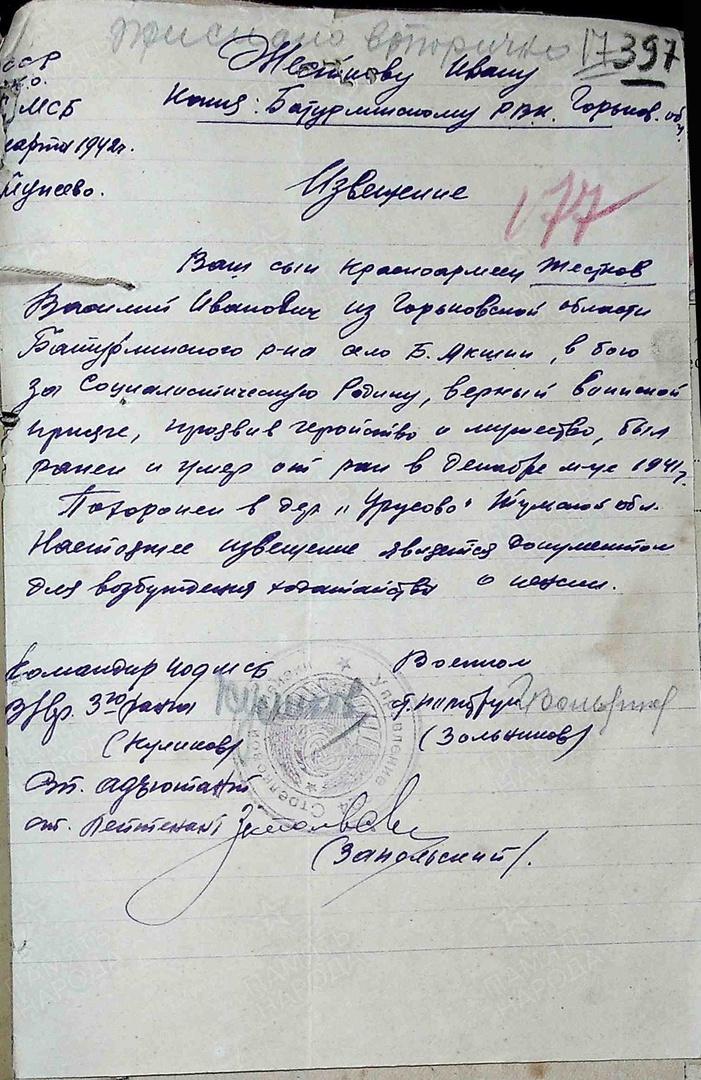 прислано вторично 17397
Жесткову Ивану
ССР
Копия: Батурлинскому РВК. Горьков. обл.
МСБ
марта 1942г.
Извещение
177
Ваш сын красноармеец Жестков
Василий Иванович из Горьковской области
Батурлинского р-на село Б. Якшин, в бою
за Социалистическую Родину, верный воинской
присяге, проявив геройство и мужество, был
ранен и умер от ран в декабре м-це 1941г.
Похоронен в дер. "Урусово" Тумской обл.
Настоящее извещение является документом
для возбуждения ходатайства о пенсии.
Командир МСБ
Военком
3го ранга
(Куликов)
(Зольников)
Управление
Стрелковой
Ст. адъютант
ст. лейтенант
(Запольский).
ПАМЯТЬ
НАРОДА